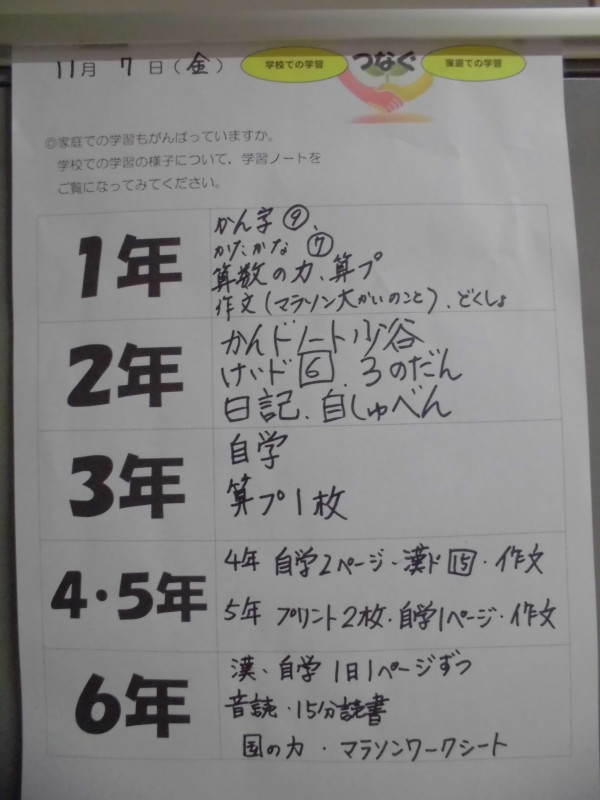 11月 7日(金)
学校での学習 つなぐ 家庭での学習
◎家庭での学習もがんばっていますか。
学校での学習の様子について、学習ノートを
ご覧になってみてください。
1年
かん字⑨、
かたかな ⑦
算数の力、算プ
作文(マラソン大かいのこと)、どくしょ
2年
かんドノート少谷
けいド6、3のだん
日記、自しゅべん
3年
自学
算プ1枚
4・5年
4年 自学2ページ・漢ド15・作文
5年 プリント2枚・自学1ページ・作文
6年
漢、自学 1日1ページずつ
音読・15分読書
国の力・マラソンワークシート